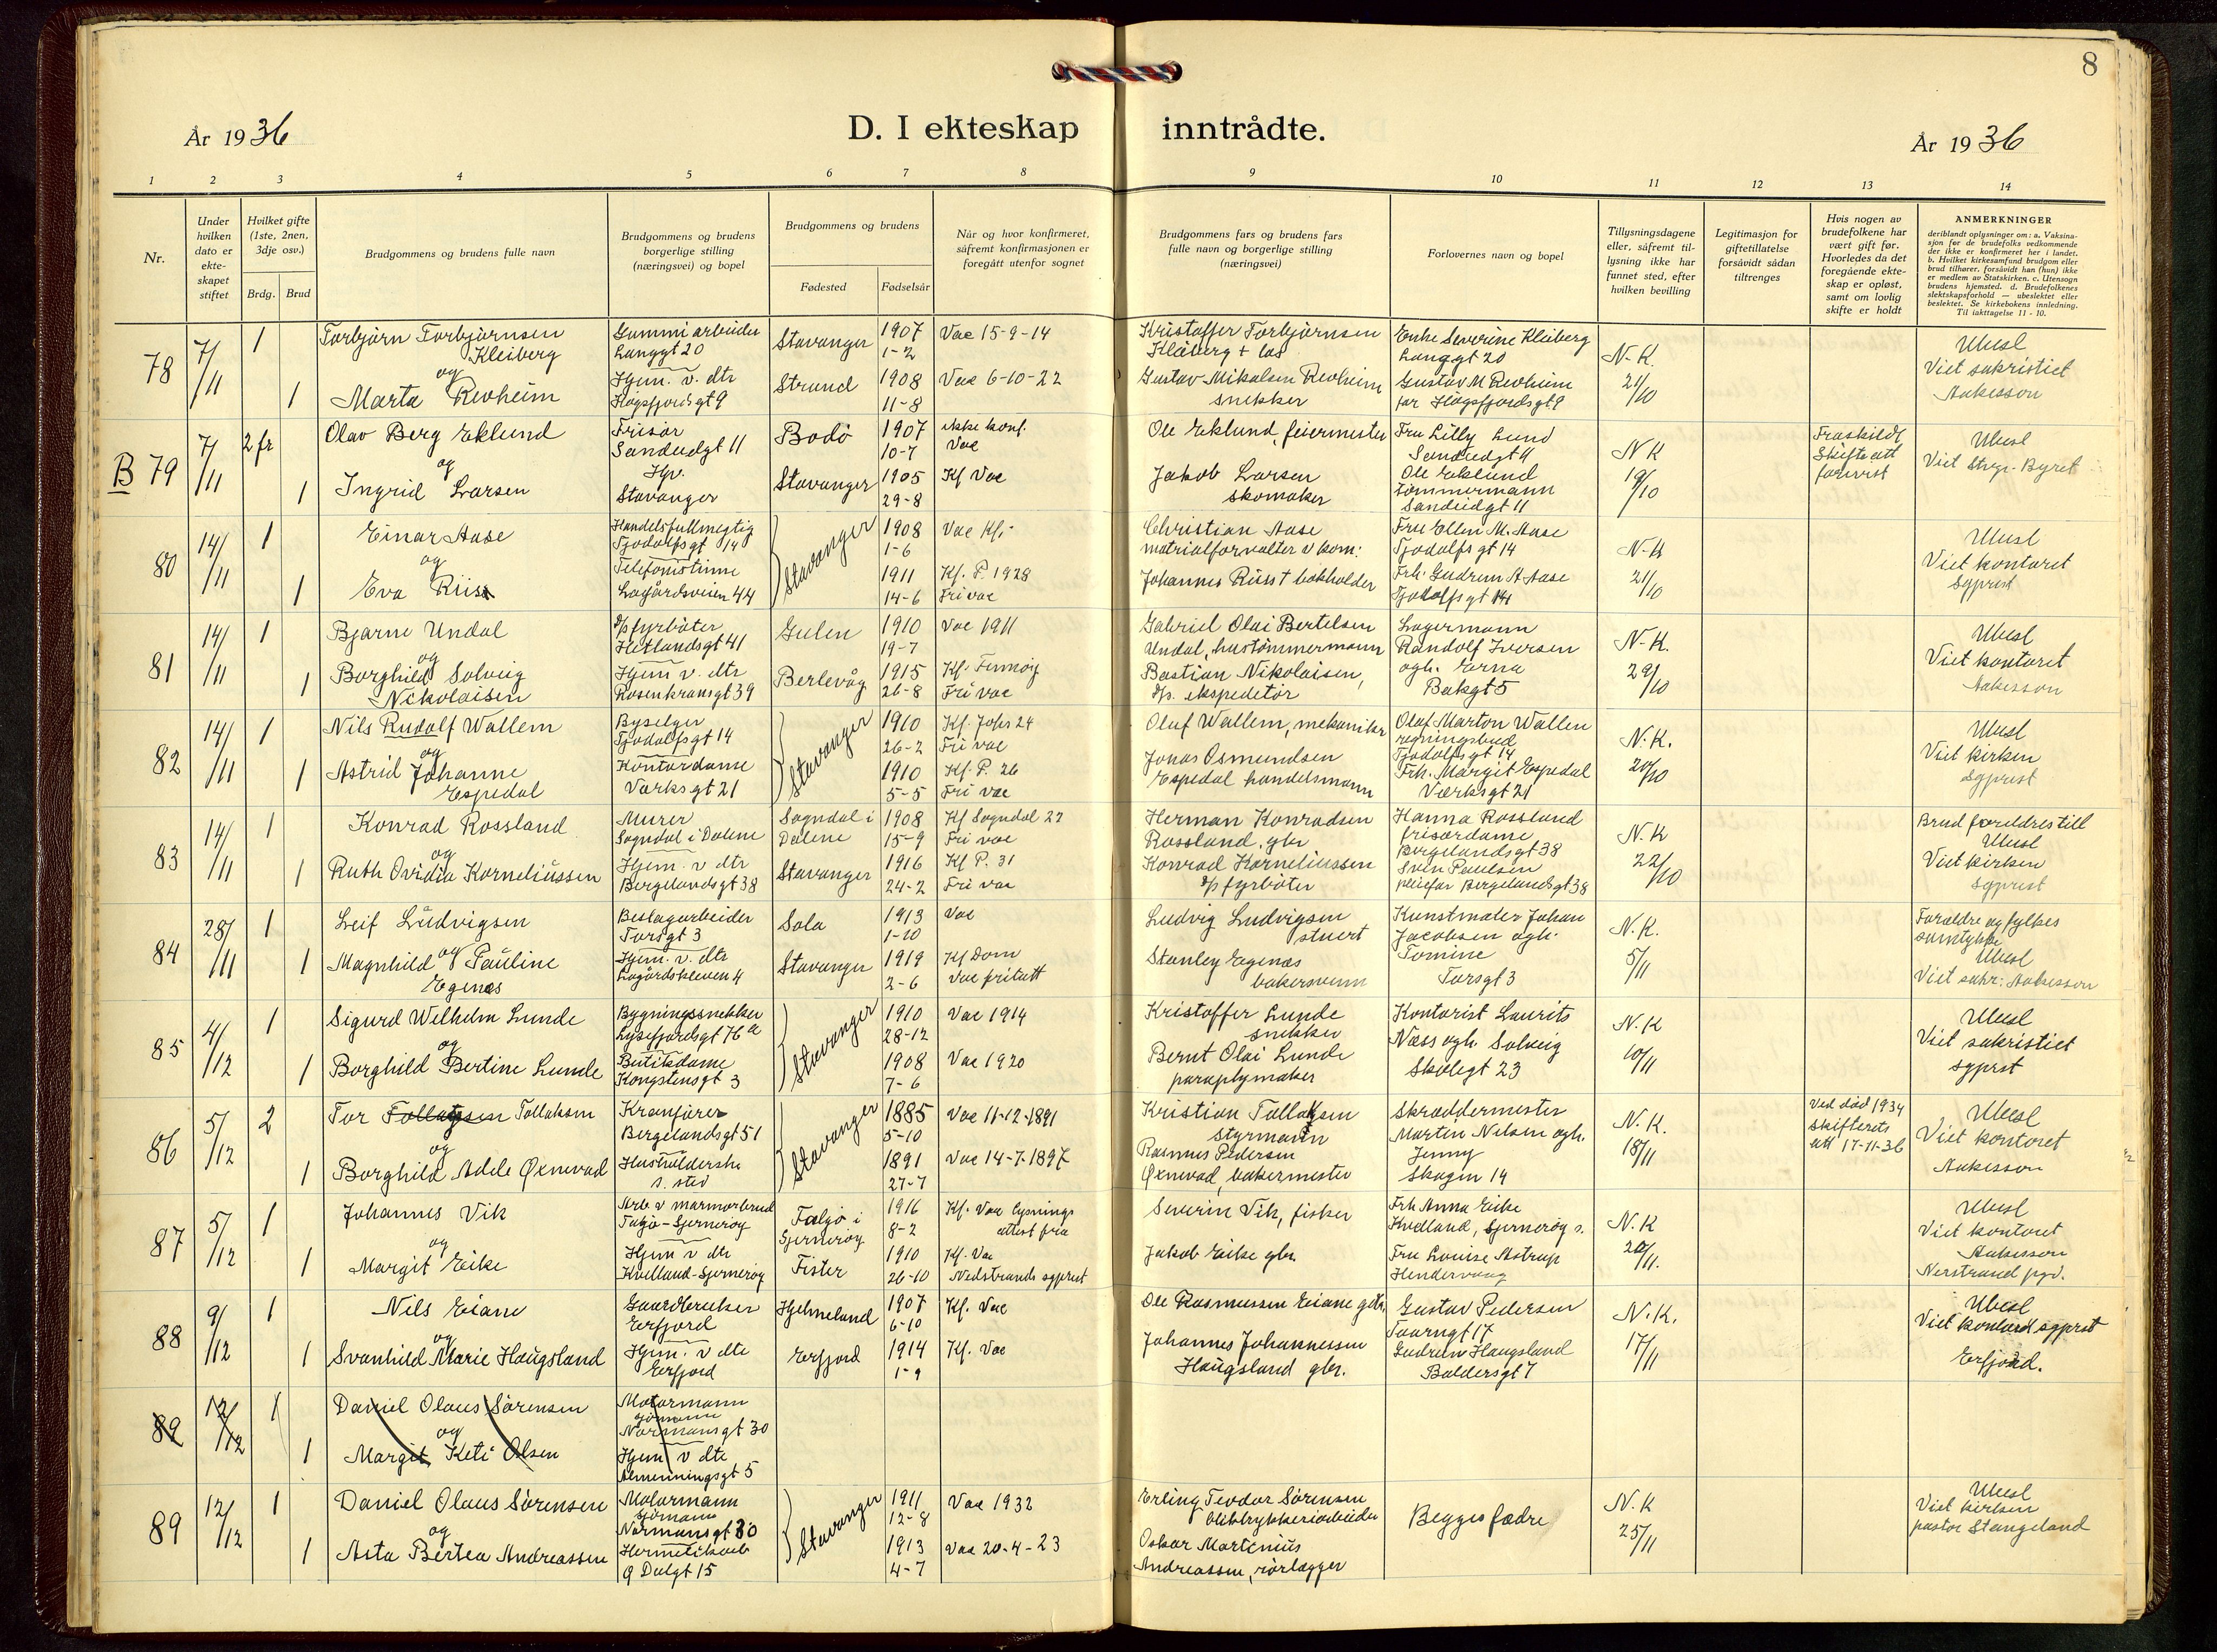 8
År 1936
D. I ekteskap inntrådte.
År 1936
1 2 3 4 5 6 7 8 9 10 11 12 13 14
Nr.
Under hvilken dato er ekteskapet stiftet
Hvilket gifte (1ste, 2nen, 3dje osv.)
Brdg. Brud
Brudgommens og brudens fulle navn
Brudgommens og brudens borgerlige stilling (næringsvei) og bopel
Brudgommens og brudens
Fødested
Fødselsår
Når og hvor konfirmeret, såfremt konfirmasjonen er foregått utenfor sognet
Brudgommens fars og brudens fars fulle navn og borgerlige stilling (næringsvei)
Forlovernes navn og bopel
Tillysningsdagene eller, såfremt tillysning ikke har funnet sted, efter hvilken bevilling
Legitimasjon for giftetillatelse forsåvidt sådan tiltrenges
Hvis nogen av brudefolkene har vært gift før. Hvorledes da det foregående ekteskap er opløst, samt om lovlig skifte er holdt
ANMERKNINGER
deriblandt oplysninger om: a. Vaksinasjon før de brudefolks vedkommende der ikke er konfirmeret her i landet. b. Hvilket kirkesamfund brudgom eller brud tilhører, forsåvidt han (hun) ikke er medlem av Statskirken. c. Utensogn brudens hjemsted. d. Brudefolkenes slektskapsforhold — ubeslektet eller beslektet. Se kirkebokens innledning. Til iakttagelse 11 - 10.
78
7/11
1
Torbjørn Torbjørnsen Kleiberg
Gummiarbeider
Langgt 20
Stavanger
1907
1-2
Vac 15-9-14
Kristoffer Torbjørnsen
Kleiberg + los
Enke Severine Kleiberg
Langgt 20
N-K.
21/10
Ubesl
Viet sakristiet
Aakesson
og
1
Marta Revheim
Hjem. v. dtr
Høgsfjordsgt 9
Strand
1908
11-8
Vac 6-10-22
Gustav Mikalsen Revheim
snekker
Gustav M Revheim
far Høgsfjordsgt. 9
B 79
7/11
2 fr
Olav Berg Eklund
Frisør
Sandeidgt 11
Bodø
1907
10-7
ikke konf.
Vac
Ole Eklund, feiermester
Fru Lilly Lund
Sandeidgt 11
N K
19/10
Fraskilt
Skifteatt
forevist
Ubesl
Viet Stvgr. Byret
og
1
Ingrid Larsen
Hp.
Stavanger
Stavanger
1905
29-8
Kf Vac
Jakob Larsen
skomaker
Ole Eklund
tømmermann
Sandeidgt 11
80
14/11
1
Einar Aase
Handelsfullmegtig
Tjodolfsgt 14
Stavanger
1908
1-6
Vac Kf.
Christian Aase
matrialforvalter v kom:
Fru Ellen M. Aase
Tjodolfsgt 14
N-K
21/10
Ubesl
Viet kontoret
Sgprest
og
1
Eva Riis
Telefonistinne
Lagårdsveien 44
1911
14-6
Kf. P. 1928
Fri vac
Johannes Riis + bokholder
Frk. Gudrun A Aase
Tjodolfsgt 14
81
14/11
1
Bjarne Undal
D/p fyrbøter
Hetlandsgt 41
Gulen
1910
19-7
Vac 1911
Gabriel Olai Bertelsen
Undal, hustømmermann
Lagermann
Randolf Iversen
ogh. Erna
Bakgt 5
N-K.
29/10
Ubesl
Viet kontoret
Aakesson
og
1
Borghild Solveig
Nikolaisen
Hjem v. dtr
Rosenkransgt 39
Berlevåg
1915
26-8
Kf. Finnøy
Fri vac
Bastian Nikolaisen,
D/s. ekspeditør
82
14/11
1
Nils Rudolf Wallem
Byselger
Tjodolfsgt 14
Stavanger
1910
26-2
Kf. Johs 24
Fri vac
Oluf Wallem, mekaniker
Olaf Marton Wallen
regningsbud
Tjodolfsgt 14
N.K.
20/10
Ubesl
Viet kirken
Sgprest
og
1
Astrid Johanne
Espedal
Kontordame
Verksgt 21
1910
5-5
Kf. P. 26
Fri vac
Jonas Osmundsen
Espedal handelsmann
Frk. Margit Espedal
Verksgt 21
83
14/11
1
Konrad Rossland
Murer
Sogndal i Dalene
Sogndal i
Dalene
1908
15-9
Kf Sogndal 22
Fri vac
Herman Konradsen
Rossland, gbr
Hanna Rossland
frisørdame
Bergelandsgt 38
N.K
22/10
Brud foreldres till
Ubesl
Viet kirken
Sgprest
og
1
Ruth Ovidia Korneliussen
Hjem. v dtr
Bergelandsgt 38
Stavanger
1916
24-2
Kf P. 31
Fri vac
Konrad Korneliussen
D/p fyrbøter
Sven Paulsen
pleiefar Bergelandsgt 38
84
28/11
1
Leif Ludvigsen
Beslagarbeider
Torsgt 3
Sola
1913
1-10
Vac
Ludvig Ludvigsen
stuert
Kunstmaler Johan
Jacobsen ogh.
Tomine
Torsgt 3
N.K.
5/11
Foreldre og fylkes
samtykke
Ubesl
Viet sakr: Aakesson
og
1
Magnhild Pauline
Egenes
Hjem. v. dtr
Lagårdskleven 4
Stavanger
1919
2-6
Kf Dom
Vac fritatt
Stanley Egenes
bakersvenn
85
4/12
1
Sigurd Wilhelm Lunde
Bygningssnekker
Lysefjordsgt 76 a
Stavanger
1910
28-12
Vac 1914
Kristoffer Lunde
snekker
Kontorist Laurits
Næss ogh. Solveig
Skolegt 23
N.K
10/11
Ubesl
Viet sakristiet
sgprst
og
1
Borghild Bertine Lunde
Butikdame
Kongstensgt 3
1908
7-6
Vac 1920
Bernt Olai Lunde
paraplymaker
86
5/12
2
Tor Tollaksen
Kranfører
Bergelandsgt 51
Stavanger
1885
5-10
Vac 11-12-1891
Kristian Tollaksen
styrmann
Skreddermester
Martin Nilsen ogh.
Jenny
Skagen 14
N.K.
18/11
Ved død 1934
skifterets
att 17-11-36
Ubesl
Viet kontoret
Aakesson
og
1
Borghild Adele Øxnevad
Husholderske
s. sted
1891
27-7
Vac 14-7-1897
Rasmus Pedersen
Øxnevad, bakermester
87
5/12
1
Johannes Vik
Arb. v marmorbrud
Talgje-Sjernerøy
Talgje i
Sjernerøy
1916
8-2
Kf. Vac lysnings
attest fra
Severin Vik, fisker
Frk Anna Eike
Kvelland, Sjernerøy s.
N.K
20/11.
Ubesl
Viet kontoret
Aakesson
Nerstrand pgd.
og
1
Margit Eike
Hjem v dtr
Kvelland-Sjernerøy
Fister
1910
26-10
Kf. Vac
Nedstrands sgprest
Jakob Eike gbr.
Fru Louise Astrup
88
9/12
1
Nils Eiane
Gaardbruker
Erfjord
Hjelmeland
1907
6-10
Kf. Vac
Ole Rasmussen Eiane gbr.
Gustav Pedersen
Taarngt 17
N.K.
17/11
Ubesl
Viet kontoret sgprst
Erfjord.
og
1
Svanhild Marie Haugsland
Hjem. v dtr
Erfjord
Erfjord
1914
1-9
Kf. Vac
Johannes Johannessen
Haugsland gbr.
Gudrun Haugsland
Baldersgt 7
89
12/12
1
Daniel Olaus Sørensen
Motormann
sjømann
Normansgt 30
og
1
Margit Keti Olsen
Hjem v dtr
Almenningsgt 5
89
12/12
1
Daniel Olaus Sørensen
Motormann
sjømann
Normansgt 30
Stavanger
1911
12-8
Vac 1932
Erling Teodor Sørensen
blikktrykkeriarbeider
Begges fædre
N.K
25/11
Ubesl
Viet kirken
pastor Stangeland
og
1
Asta Bertea Andreassen
Hermetikarb
Ø Dalgt 15
1913
4-7
Vac 20-4-23
Oskar Martinius
Andreassen, rørlegger